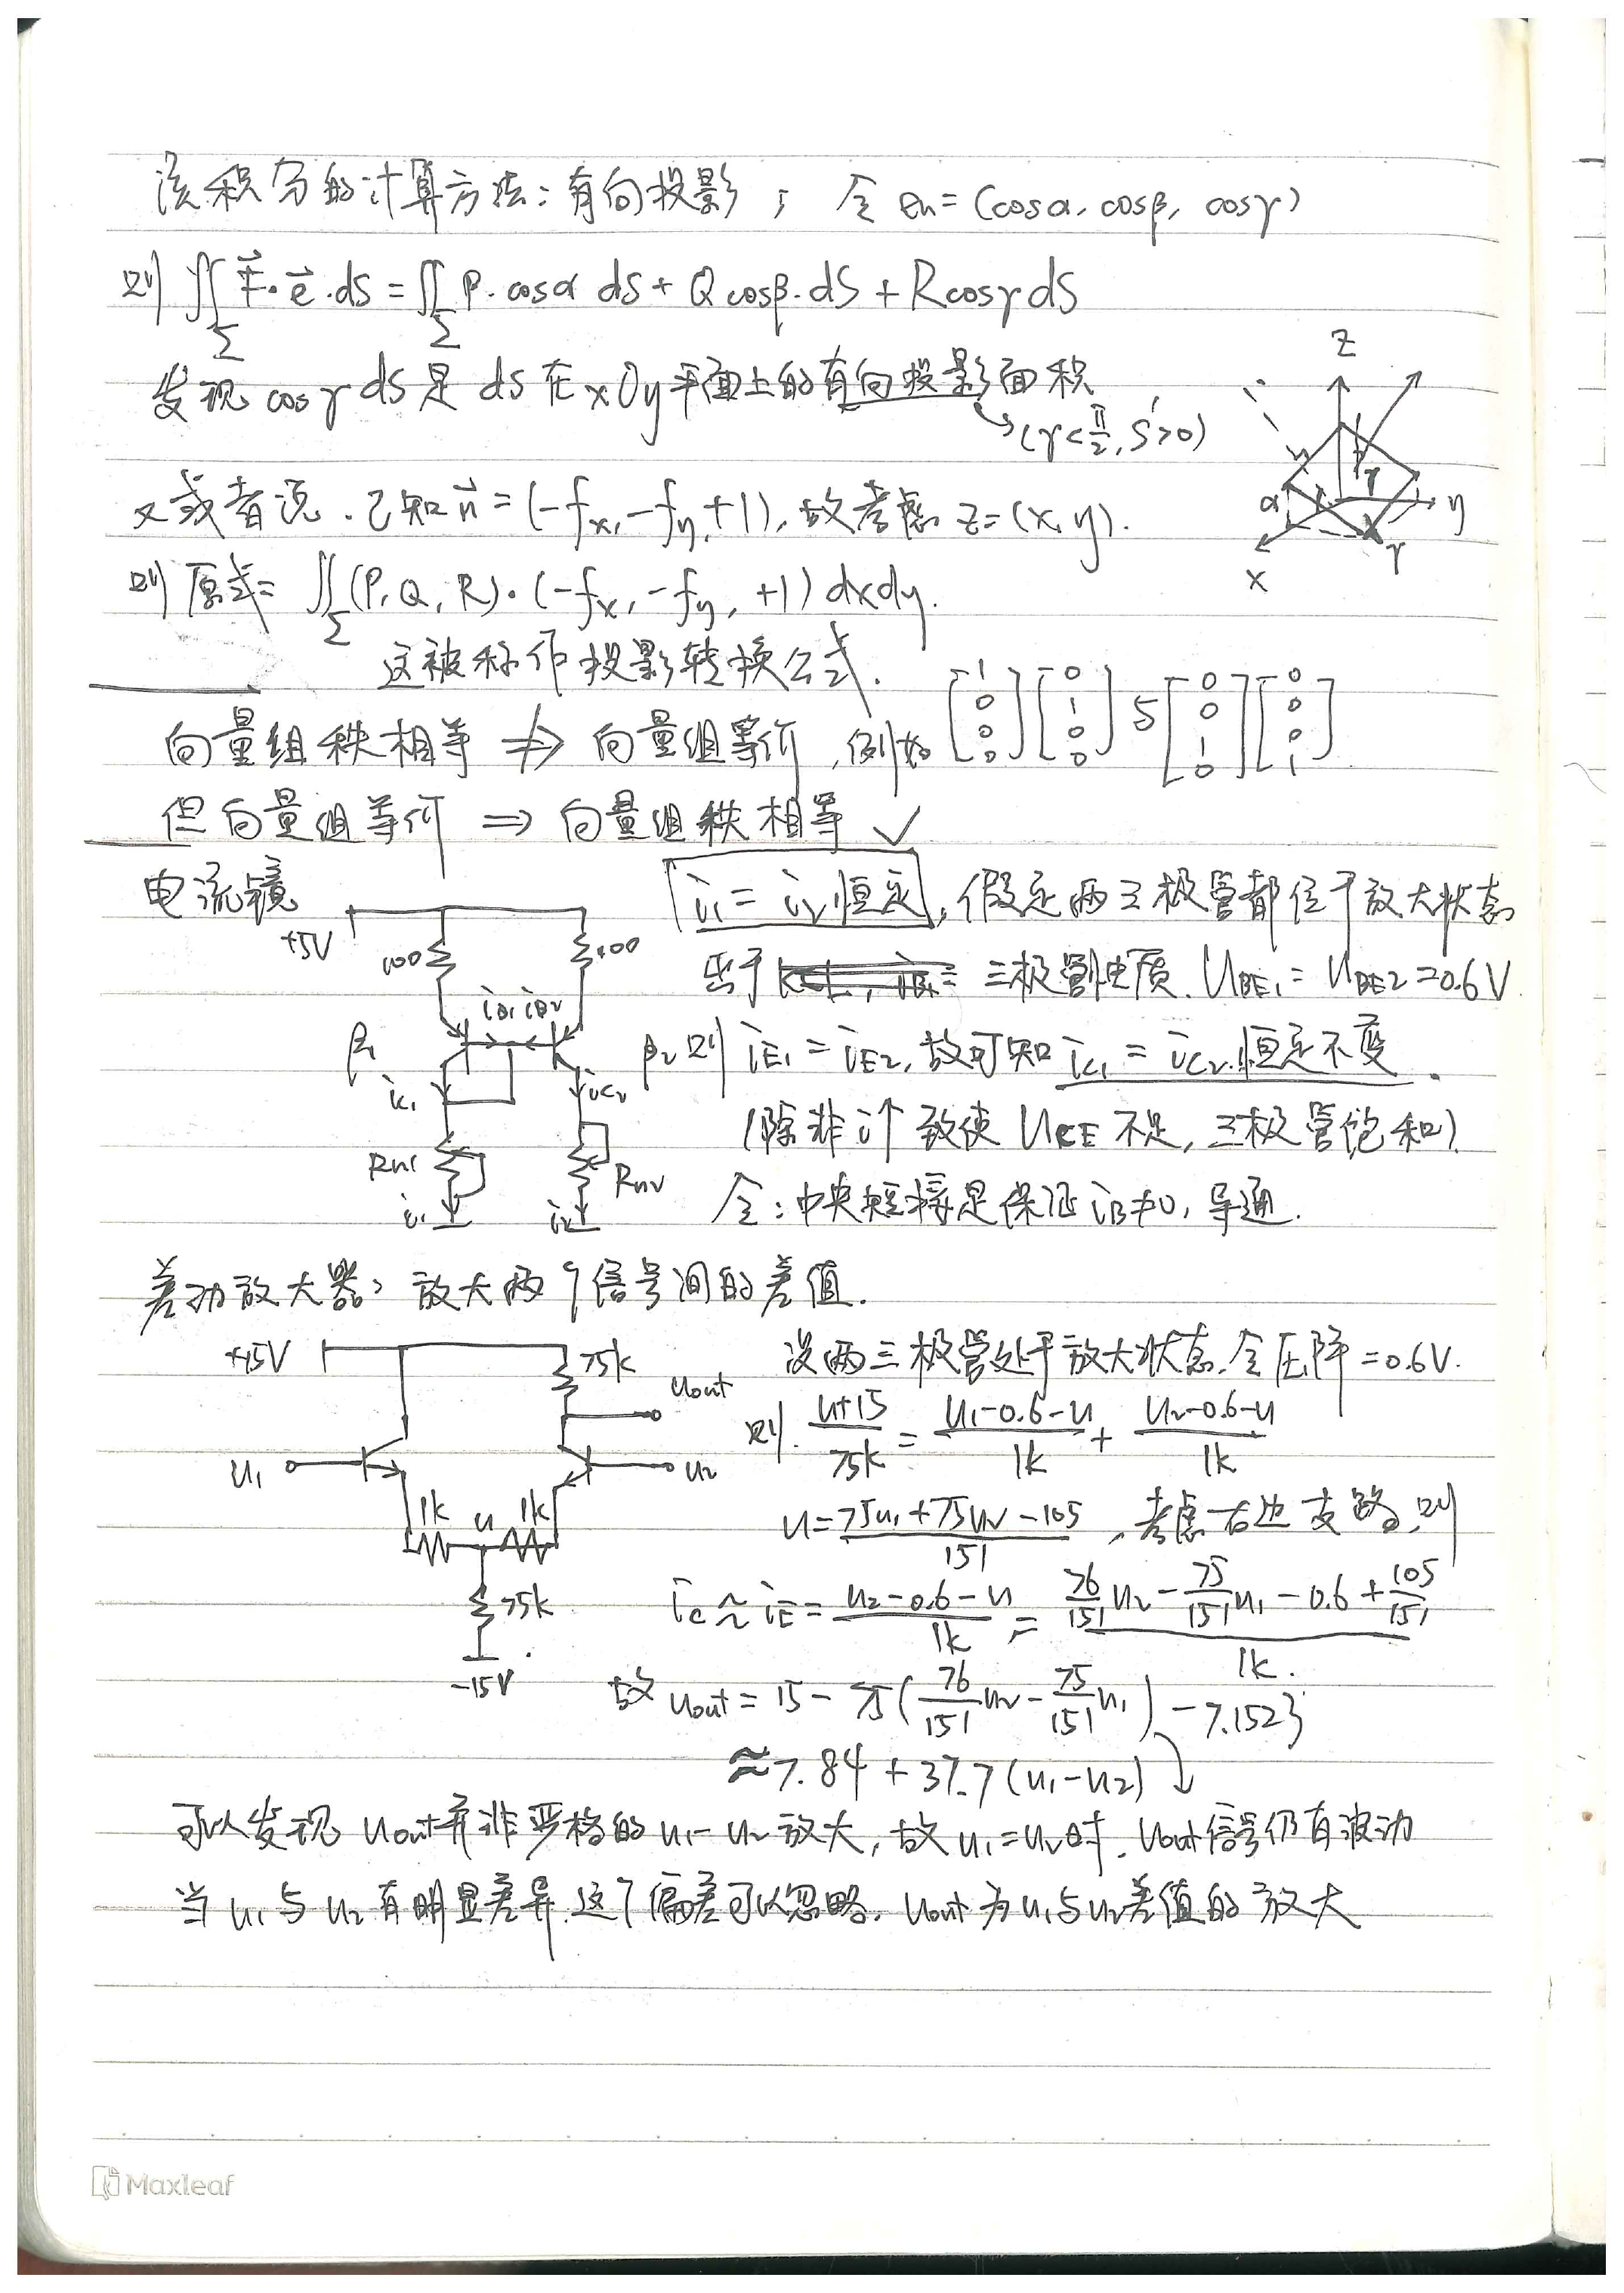 该积分的计算方法：有向投影； 令 en = (cosα, cosβ, cosγ)
则 ∬Σ F⃗·e⃗·dS = ∬Σ P·cosα dS + Q cosβ·dS + R cosγ dS
发现 cosγ dS 是 dS 在 xOy 平面上的有向投影面积
(γ<π/2, S'>0)
z
α γ y
x γ
又或者说．已知 n⃗ = (-fx, -fy, +1), 故考虑 z=(x,y).
则 原式= ∬Σ (P, Q, R)·(-fx, -fy, +1) dxdy.
这被称作投影转换公式.
向量组秩相等 ⇏ 向量组等价, 例如 [1 0 0 0] [0 1 0 0] 与 [0 0 1 0] [0 0 0 1]
但向量组等价 ⇒ 向量组秩相等 ✓
电流镜 i1 = i2 恒定, 假定两三极管都位于放大状态
+5V 100 100
由于 三极管性质. UBE1 = UBE2 = 0.6V
iB1 iB2
β1 β2 则 iE1 = iE2, 故可知 iC1 = iC2 恒定不变.
iC1 iC2
(除非 i↑ 致使 UCE 不足, 三极管饱和)
RW1 RW2
i1 i2 令：中央短接是保证 iB≠0, 导通.
差动放大器： 放大两个信号间的差值.
+15V 75k uout 设两三极管处于放大状态. 令压降 = 0.6V.
则. (u+15)/75k = (u1-0.6-u)/1k + (u2-0.6-u)/1k
u1 u2
1k u 1k u = (75u1+75u2-105)/151, 考虑右边支路, 则
75k ic ≈ iE = (u2-0.6-u)/1k = (76/151 u2 - 75/151 u1 - 0.6 + 105/151)/1k.
-15V 故 uout = 15 - 75(76/151 u2 - 75/151 u1) - 7.1523
≈ 7.84 + 37.7 (u1-u2)
可以发现 uout 并非严格的 u1-u2 放大, 故 u1=u2 时. uout 信号仍有波动
当 u1 与 u2 有明显差异. 这个偏差可以忽略. uout 为 u1 与 u2 差值的放大
Maxleaf